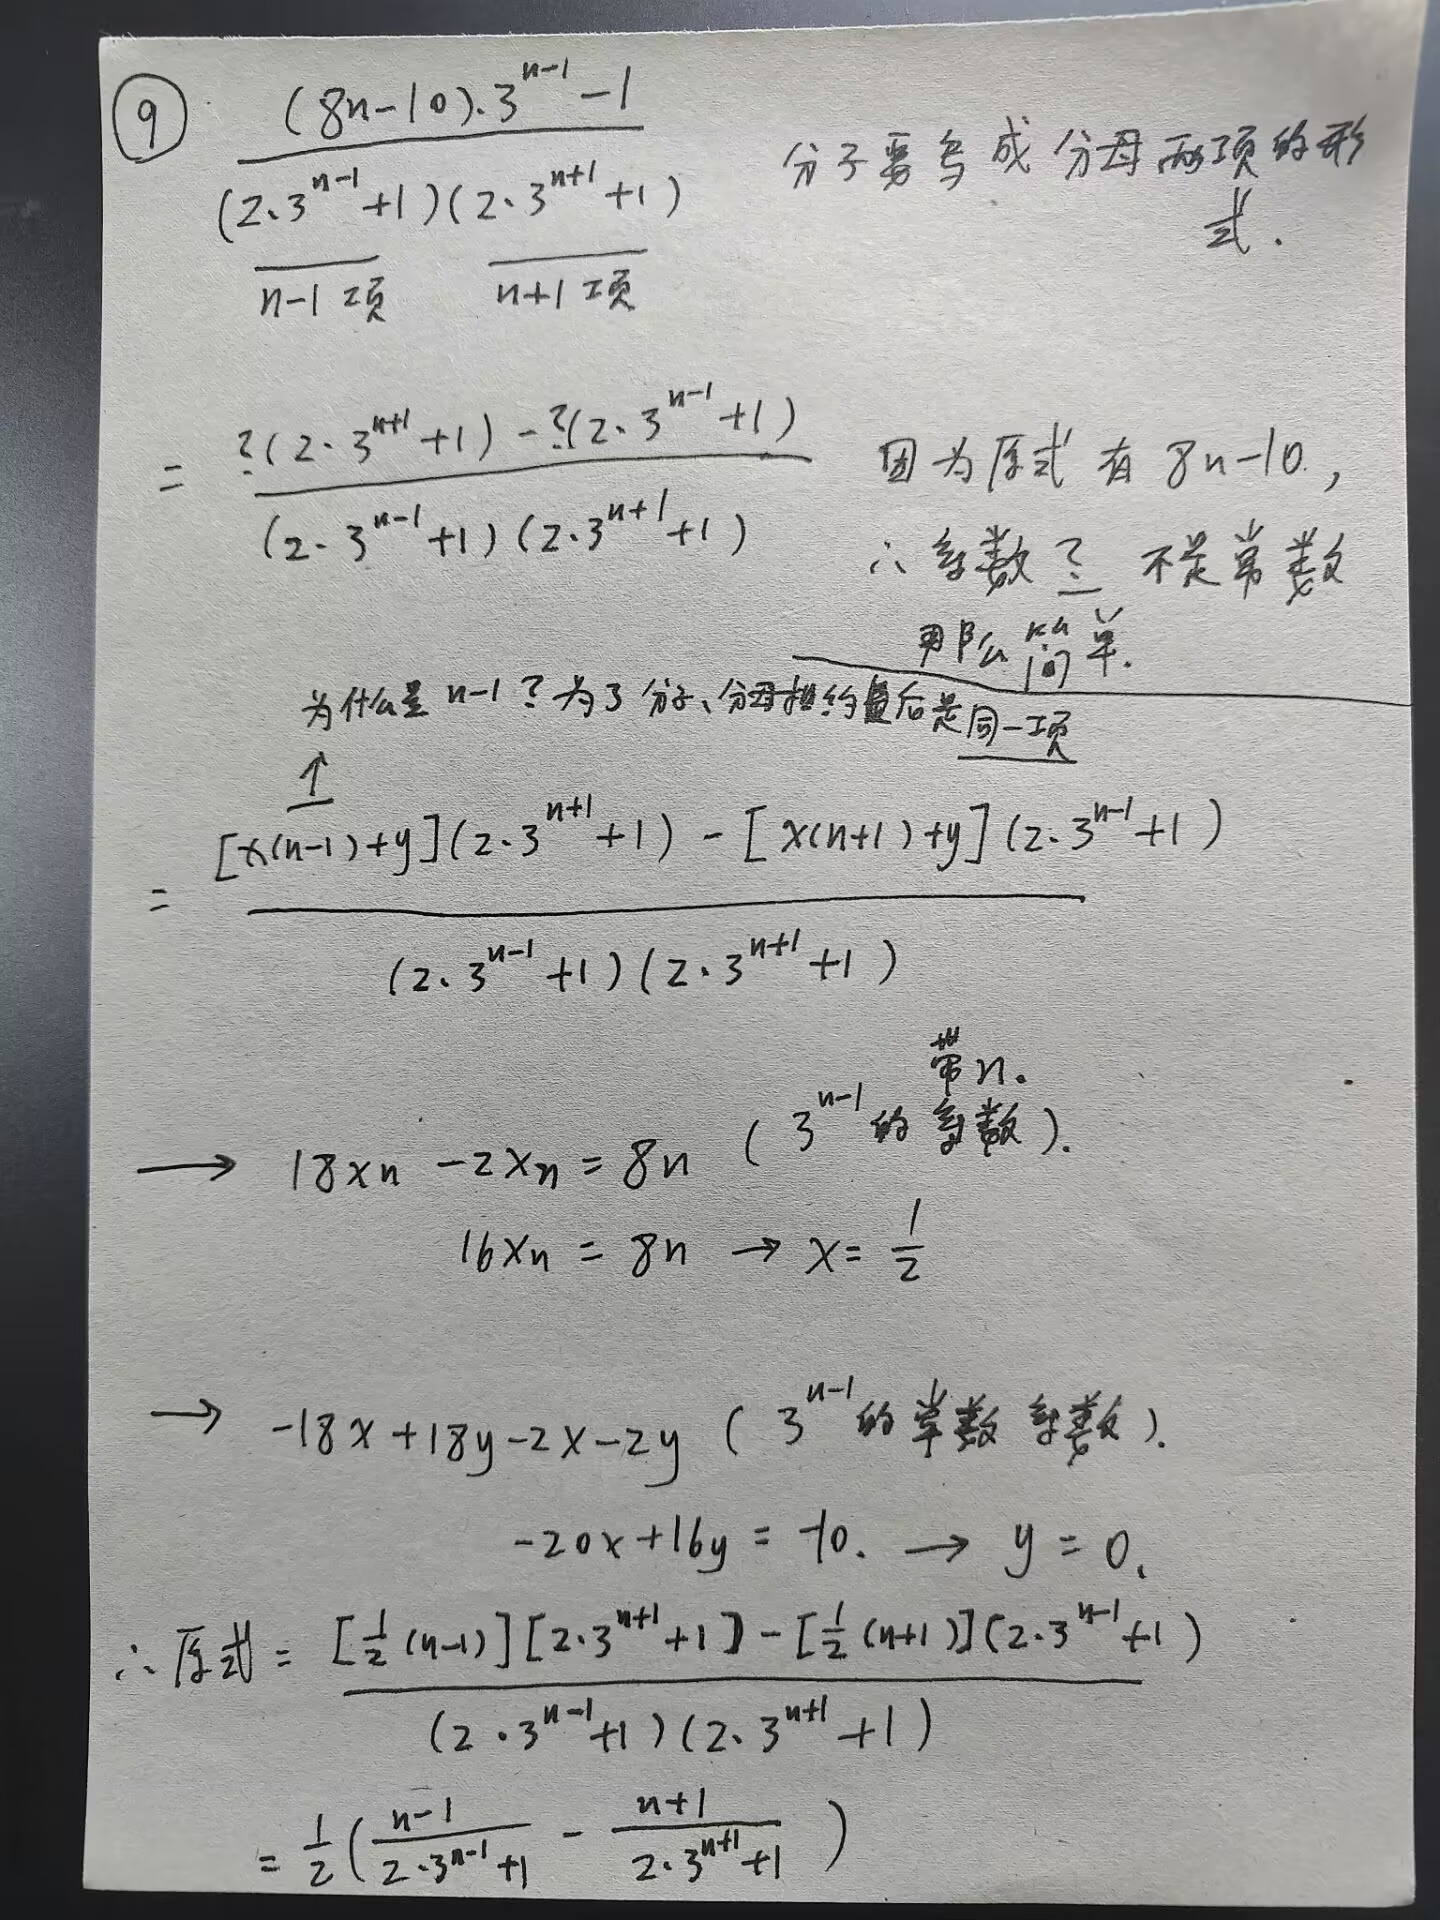 ⑨ \frac{(8n-10)·3^{n-1}-1}{(2·3^{n-1}+1)(2·3^{n+1}+1)} 分子要写成分母两项的形
式.
n-1项 n+1项
= \frac{?(2·3^{n+1}+1)-?(2·3^{n-1}+1)}{(2·3^{n-1}+1)(2·3^{n+1}+1)} 因为原式有8n-10,
∴系数? 不是常数
那么简单.
为什么是n-1?为了分子、分母 约 后是同一项
↑
= \frac{[x(n-1)+y](2·3^{n+1}+1)-[x(n+1)+y](2·3^{n-1}+1)}{(2·3^{n-1}+1)(2·3^{n+1}+1)}
带n.
→ 18xn-2xn=8n (3^{n-1}的系数).
16xn=8n→x=\frac{1}{2}
→ -18x+18y-2x-2y (3^{n-1}的常数系数).
-20x+16y=-10. → y=0.
∴原式= \frac{[\frac{1}{2}(n-1)][2·3^{n+1}+1]-[\frac{1}{2}(n+1)](2·3^{n-1}+1)}{(2·3^{n-1}+1)(2·3^{n+1}+1)}
= \frac{1}{2}(\frac{n-1}{2·3^{n-1}+1}-\frac{n+1}{2·3^{n+1}+1})